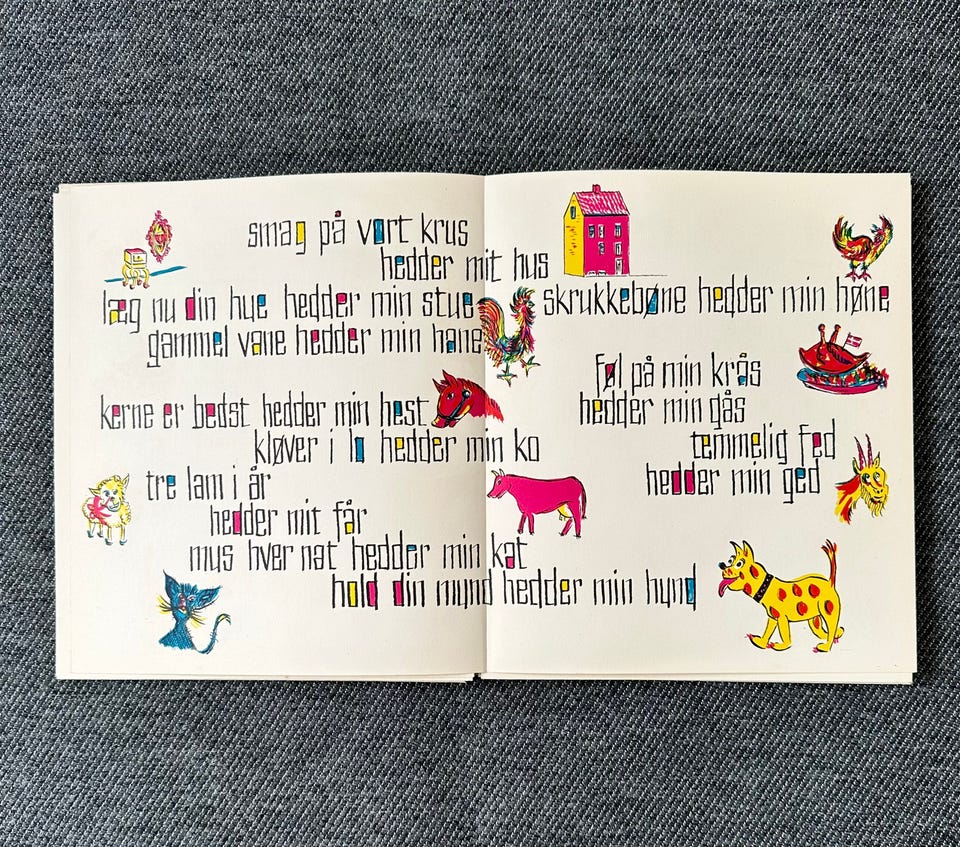 smag på vort krus
hedder mit hus
læg nu din hue hedder min stue
gammel vane hedder min hane
kerne er bedst hedder min hest
kløver i lo hedder min ko
tre lam i år
hedder mit får
mus hver nat hedder min kat
hold din mund hedder min hund
skrukkebøne hedder min høne
føl på min krås
hedder min gås
temmelig fed
hedder min ged